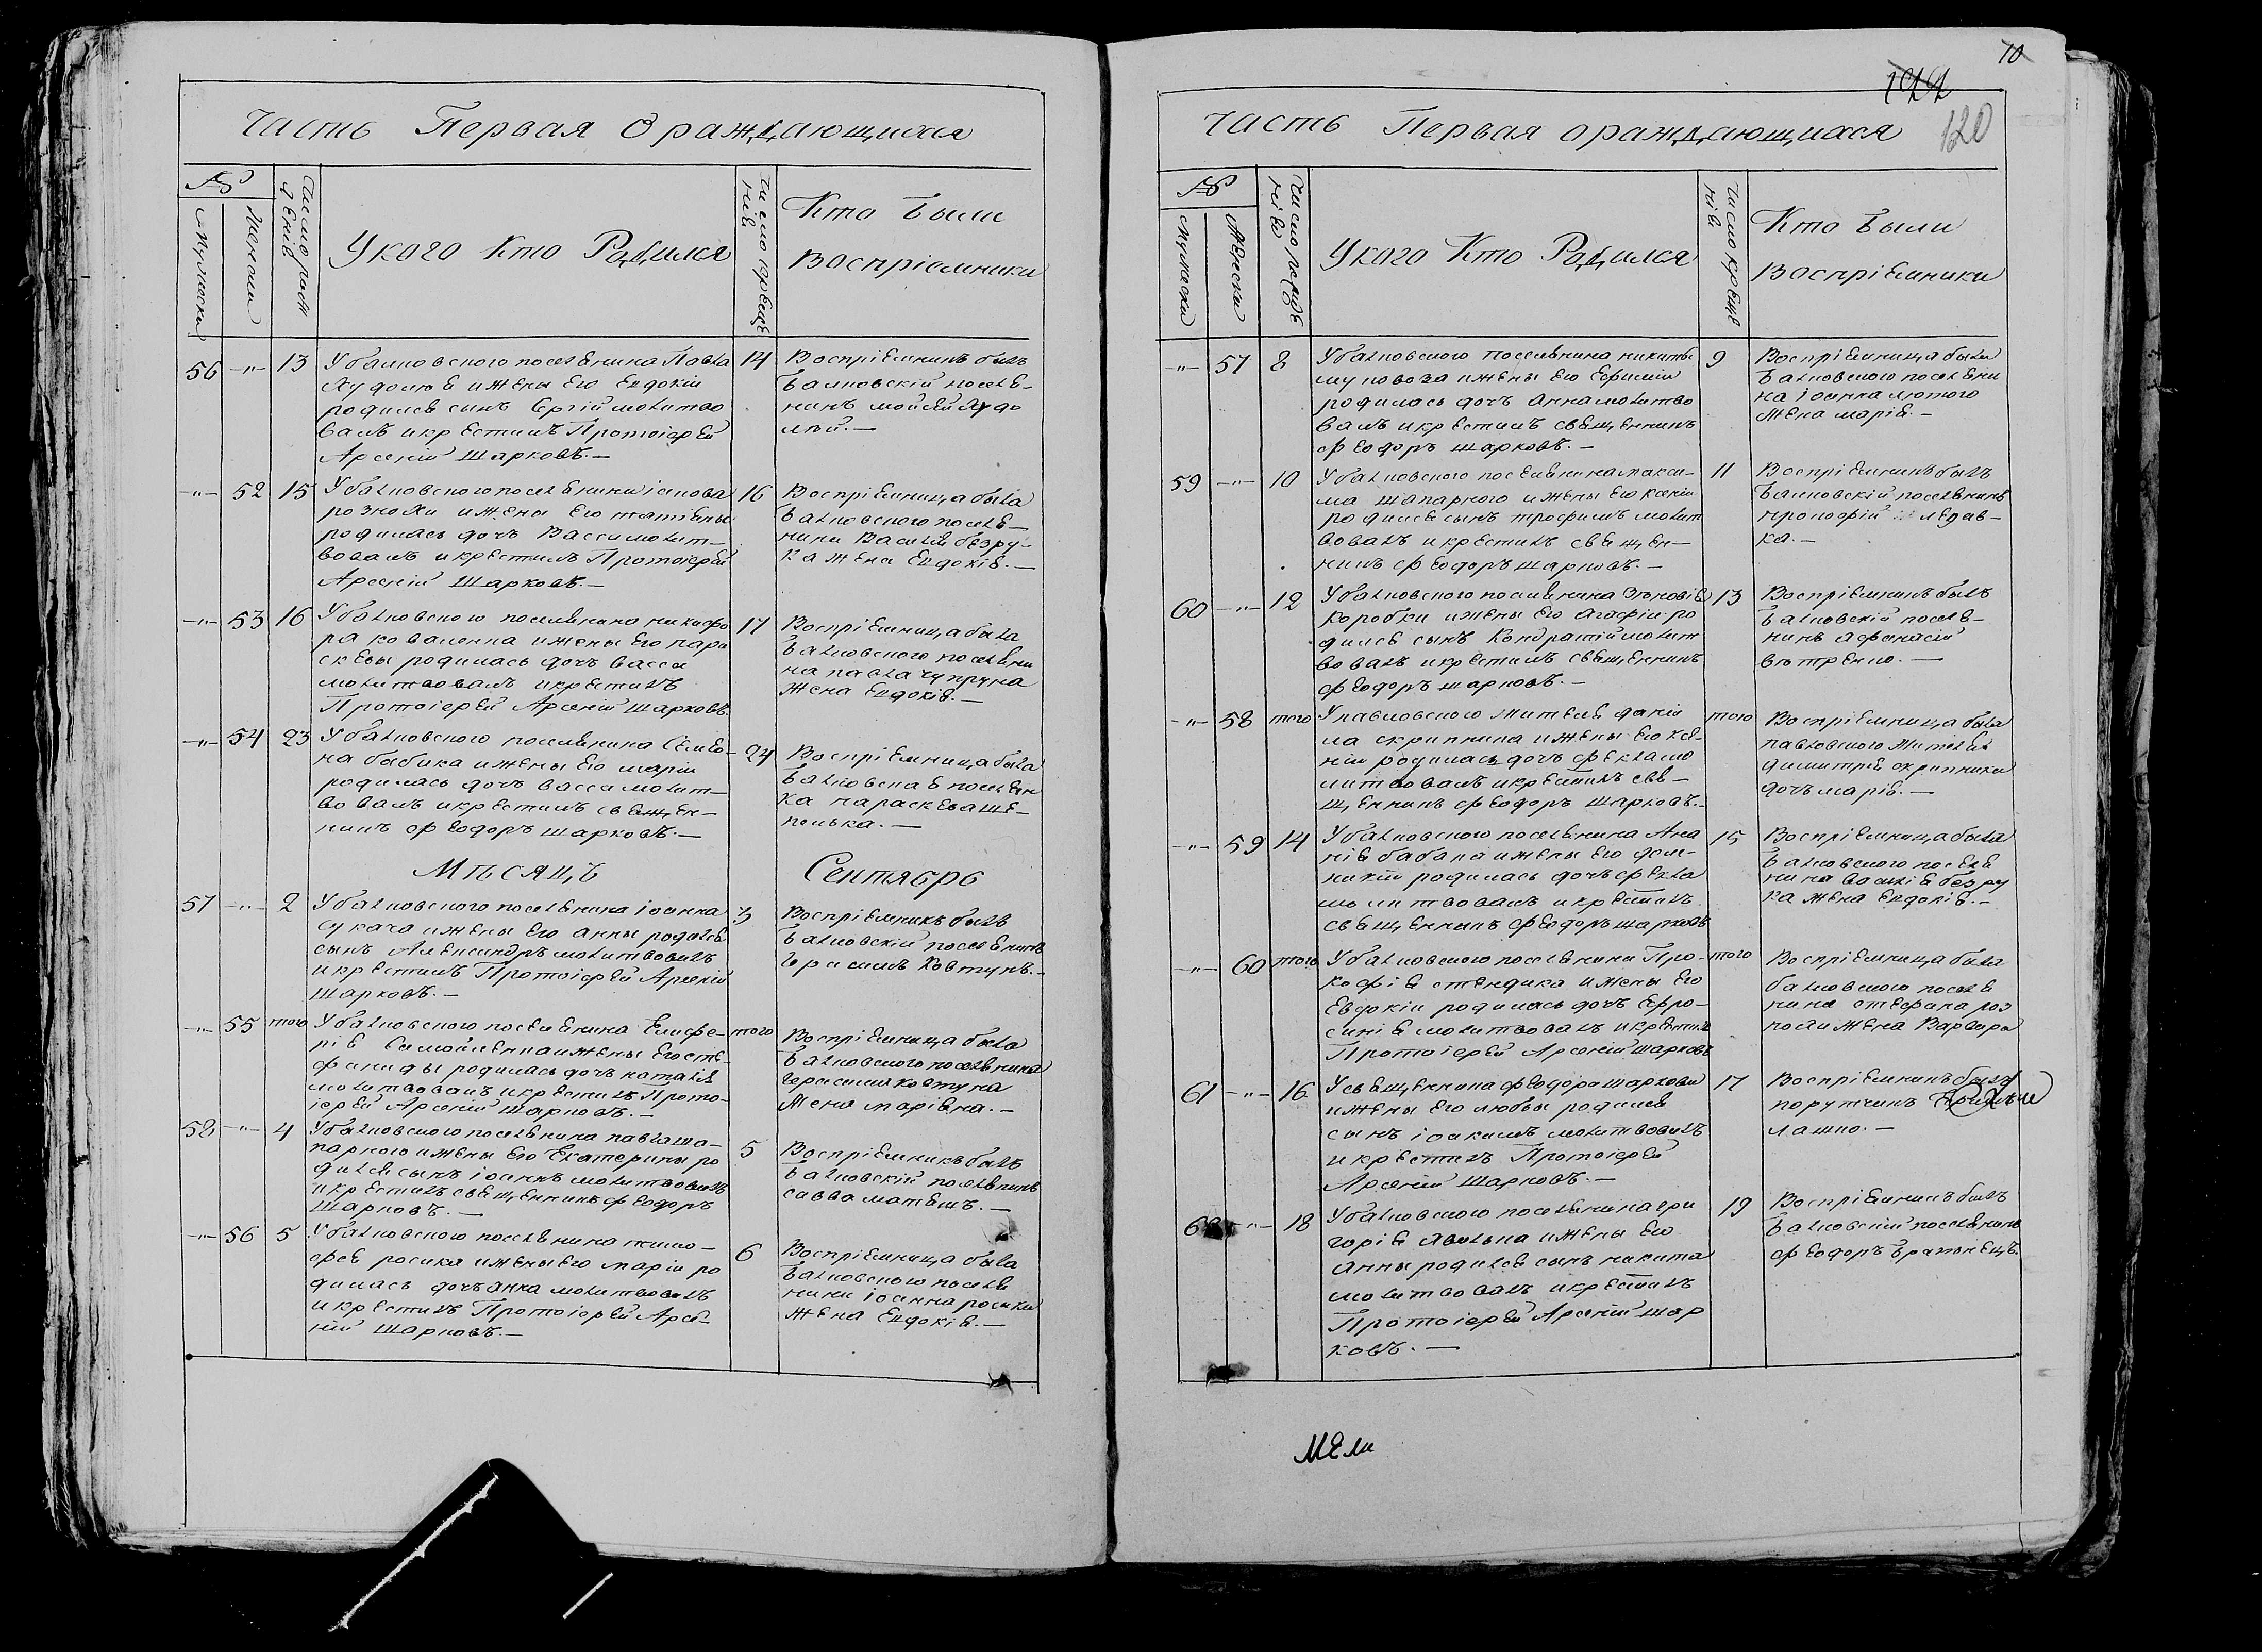 Часть Первая О раждающихся
№
Мужески
Женски
Число рож
денів
У кого Кто Родился
Число креще
нів
Кто были
Воспріемники
56 -"- 13 У балковского поселянина Павла
родился сынъ Сергій молитво
валъ и крестилъ Протоіерей
Арсеній Шарковъ.-
14 Воспріемникъ былъ
балковскій поселя-
нинъ мойсей
-"- 52 15 У балковского поселянина
и жены его татіаны
родилась дочъ Васса молит-
вовалъ и крестилъ Протоіерей
Арсеній Шарковъ.-
16 Воспріемница была
балковского поселя-
нина Василія безру-
ка жена Евдокія.-
-"- 53 16 У балковского поселянина никифо
ра коваленка и жены его пара
скевы родилась дочъ васса
молитвовалъ и крестилъ
Протоіерей Арсеній шарковъ.
17 Воспріемница была
балковского поселяни
на павла чупруна
жена Евдокія.-
-"- 54 23 У балковского поселянина Семіо-
на бабика и жены его маріи
родилась дочъ васса молит-
вовалъ и крестилъ священ-
никъ феодоръ шарковъ.-
24 Воспріемница была
балковская поселян
ка параскева ше-
пелька.-
Мѣсяцъ Сентябрь
57 -"- 2 У балковского поселянина іоанна
сукача и жены его анны родился
сынъ Александръ молитвовалъ
и крестилъ Протоіерей Арсеній
шарковъ.-
3 Воспріемникъ былъ
балковскій поселянинъ
герасимъ Ковтунъ.-
-"- 55 того У балковского поселянина Елифе-
рія Самойленка и жены его сте-
фаниды родилась дочъ наталія
молитвовалъ и крестилъ Прото-
іерей Арсеній Шарковъ.-
того Воспріемница была
балковского поселянина
герасима ковтуна
жена
58 -"- 4 У балковского поселянина павла ша-
парного и жены его Екатерины ро
дился сынъ іоаннъ молитвовалъ
и крестилъ священникъ феодоръ
Шарковъ.-
5 Воспріемникъ былъ
балковскій поселянинъ
савва матяшъ.-
-"- 56 5 У балковского поселянина тимо-
фея росика и жены его маріи ро
дилась дочъ анна молитвовалъ
и крестилъ Протоіерей Арсе-
ній Шарковъ.-
6 Воспріемница была
балковского поселя
нина іоанна росика
жена Евдокія.-
70
120
Часть Первая О раждающихся
№
Мужески
Женски
Число рожде
нів
У кого Кто Родился
Число креще
нів
Кто были
Воспріемники
-"- 57 8 У балковского поселянина никиты
и жены его Ефиміи
родилась дочъ анна молитво
валъ и крестилъ священникъ
феодоръ шарковъ.-
9 Воспріемница была
балковского поселяни
на іоанна лютого
жена марія.-
59 -"- 10 У балковского поселянина макси-
ма шапарного и жены его ксеніи
родился сынъ трофимъ молит
вовалъ и крестилъ священ-
никъ феодоръ шарковъ.-
11 Воспріемникъ былъ
балковскій поселянинъ
60 -"- 12 У балковского поселянина Зѣновія
коробки и жены его агафіи ро
дился сынъ Кондратій молит
вовалъ и крестилъ священникъ
феодоръ шарковъ.-
13 Воспріемникъ былъ
балковскій поселя-
нинъ афанасій
-"- 58 того У павловского жителя дани
ла скрипника и жены его ксе-
ніи родилась дочъ фекла мо
литвовалъ и крестилъ свя-
щенникъ феодоръ шарковъ.-
того Воспріемница была
павловского жителя
димитрія скрипника
дочъ марія.-
-"- 59 14 У балковского поселянина Ана
нія бабака и жены его дом-
никіи родилась дочъ фекла
молитвовалъ и крестилъ
священникъ феодоръ шарковъ
15 Воспріемница была
балковского поселя
нина василія безру
ка жена Евдокія.-
-"- 60 того У балковского поселянина Про-
кофія стендика и жены его
Евдокіи родилась дочъ Ефро-
синія молитвовалъ и крестилъ
Протоіерей Арсеній шарковъ
того Воспріемница была
балковского поселя
нина стефана роз
жена Варвара
61 -"- 16 У священника феодора шаркова
и жены его любвы родился
сынъ іоакимъ молитвовалъ
и крестилъ Протоіерей
Арсеній шарковъ.-
17 Воспріемникъ былъ
поручикъ
62 -"- 18 У балковского поселянина гри
горія и жены его
анны родился сынъ никита
молитвовалъ и крестилъ
Протоіерей Арсеній шар
ковъ.-
19 Воспріемникъ былъ
балковскій поселянинъ
феодоръ